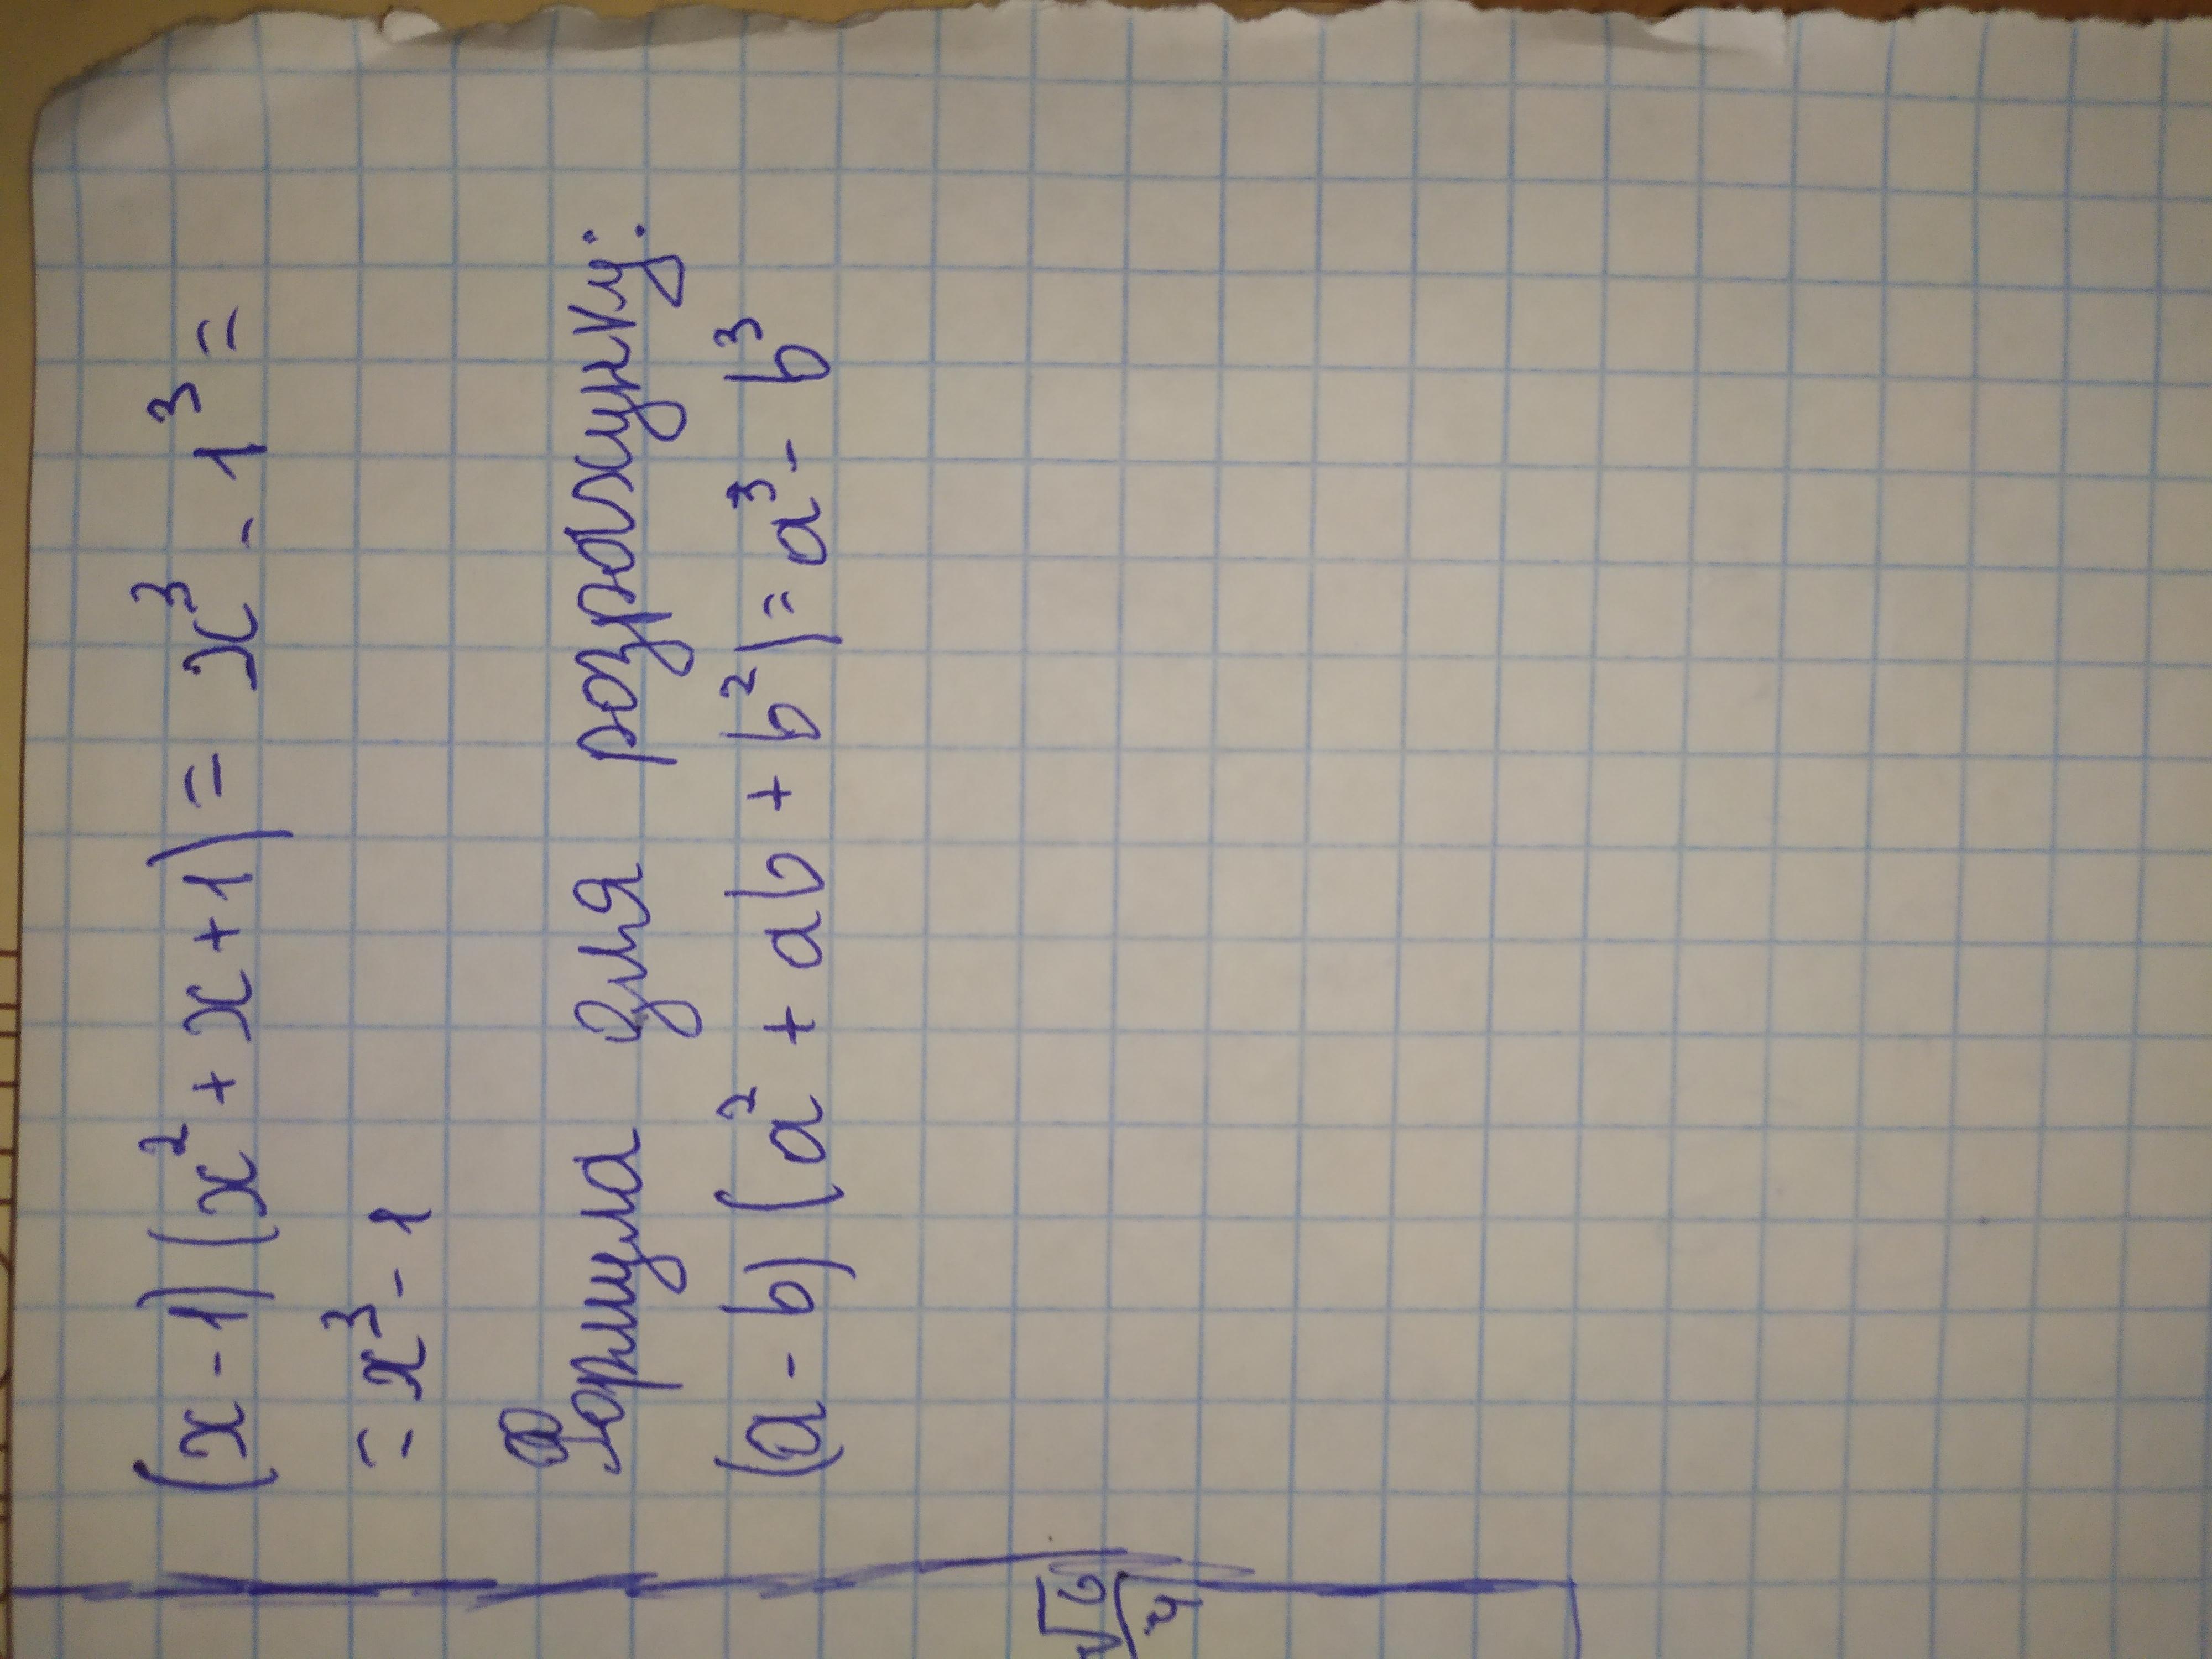 (x-1)(x²+x+1)= x³-1³=
=x³-1
Формула для розрахунку:
(a-b)(a²+ab+b²)=a³-b³
√6
4